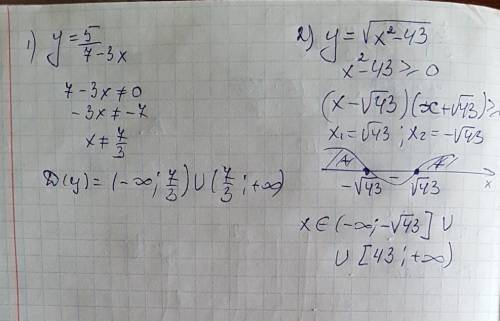 1) y = 5/(7-3x)
7-3x ≠ 0
-3x ≠ -7
x ≠ 7/3
D(y) = (-∞; 7/3) ∪ (7/3; +∞)
2) y = √(x²-43)
x²-43 ≥ 0
(x-√43)(x+√43) ≥
x₁ = √43 ; x₂ = -√43
+ - +
-√43 √43 x
x ∈ (-∞; -√43] ∪
∪ [43; +∞)